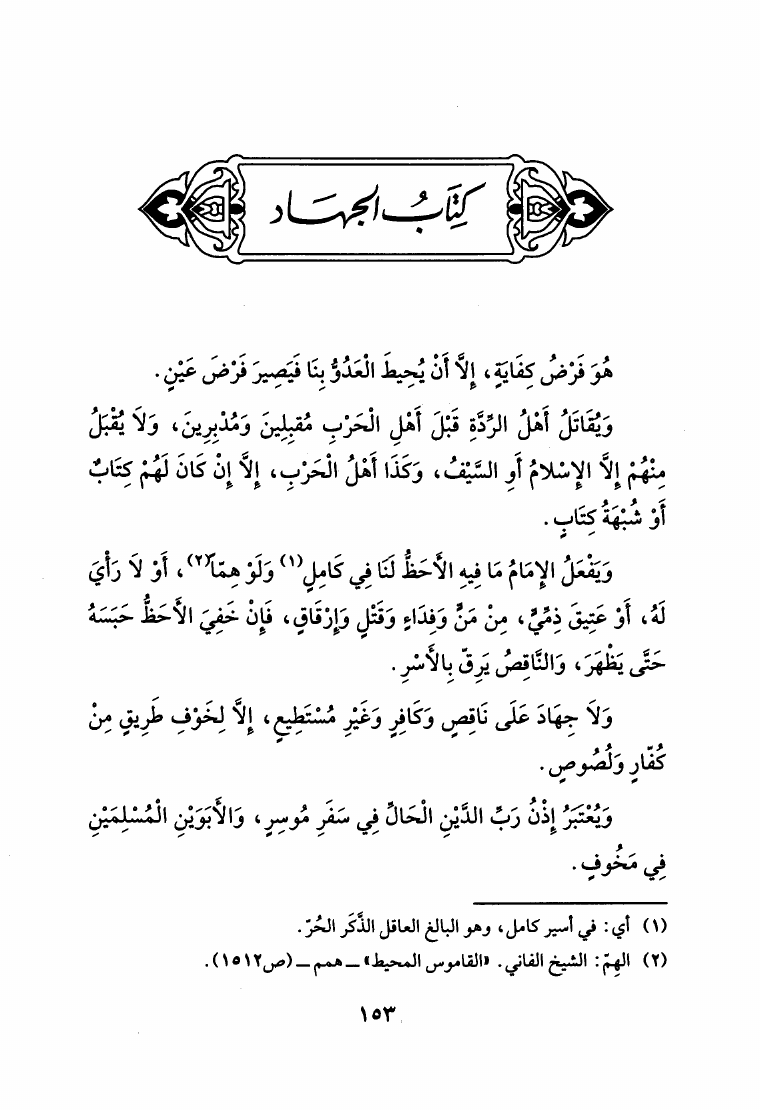 كِتَابُ الجِهَاد
هُوَ فَرْضُ كِفَايَةٍ، إِلَّا أَنْ يُحِيطَ الْعَدُوُّ بِنَا فَيَصِيرَ فَرْضَ عَيْنٍ.
وَيُقَاتَلُ أَهْلُ الرِّدَّةِ قَبْلَ أَهْلِ الْحَرْبِ مُقبِلِينَ وَمُدْبِرِينَ، وَلَا يُقْبَلُ
مِنْهُمْ إِلَّا الإِسْلَامُ أَوِ السَّيْفُ، وَكَذَا أَهْلُ الْحَرْبِ، إِلَّا إِنْ كَانَ لَهُمْ كِتَابٌ
أَوْ شُبْهَةُ كِتَابٍ.
وَيَفْعَلُ الإِمَامُ مَا فِيهِ الأَحَظُّ لَنَا فِي كَامِلٍ(١) وَلَوْ هِمّاً(٢)، أَوْ لَا رَأْيَ
لَهُ، أَوْ عَتِيقَ ذِمِّيٍّ، مِنْ مَنٍّ وَفِدَاءٍ وَقَتْلٍ وَإِرْقَاقٍ، فَإِنْ خَفِيَ الأَحَظُّ حَبَسَهُ
حَتَّى يَظْهَرَ، وَالنَّاقِصُ يَرِقُّ بِالأَسْرِ.
وَلَا جِهَادَ عَلَى نَاقِصٍ وَكَافِرٍ وَغَيْرِ مُسْتَطِيعٍ، إِلَّا لِخَوْفِ طَرِيقٍ مِنْ
كُفَّارٍ وَلُصُوصٍ.
وَيُعْتَبَرُ إِذْنُ رَبِّ الدَّيْنِ الْحَالِّ فِي سَفَرِ مُوسِرٍ، وَالأَبَوَيْنِ الْمُسْلِمَيْنِ
فِي مَخُوفٍ.
(١) أي: في أسير كامل، وهو البالغ العاقل الذَّكَر الحُرّ.
(٢) الهِمّ: الشيخ الفاني. «القاموس المحيط» ـ همم ـ (ص١٥١٢).
١٥٣